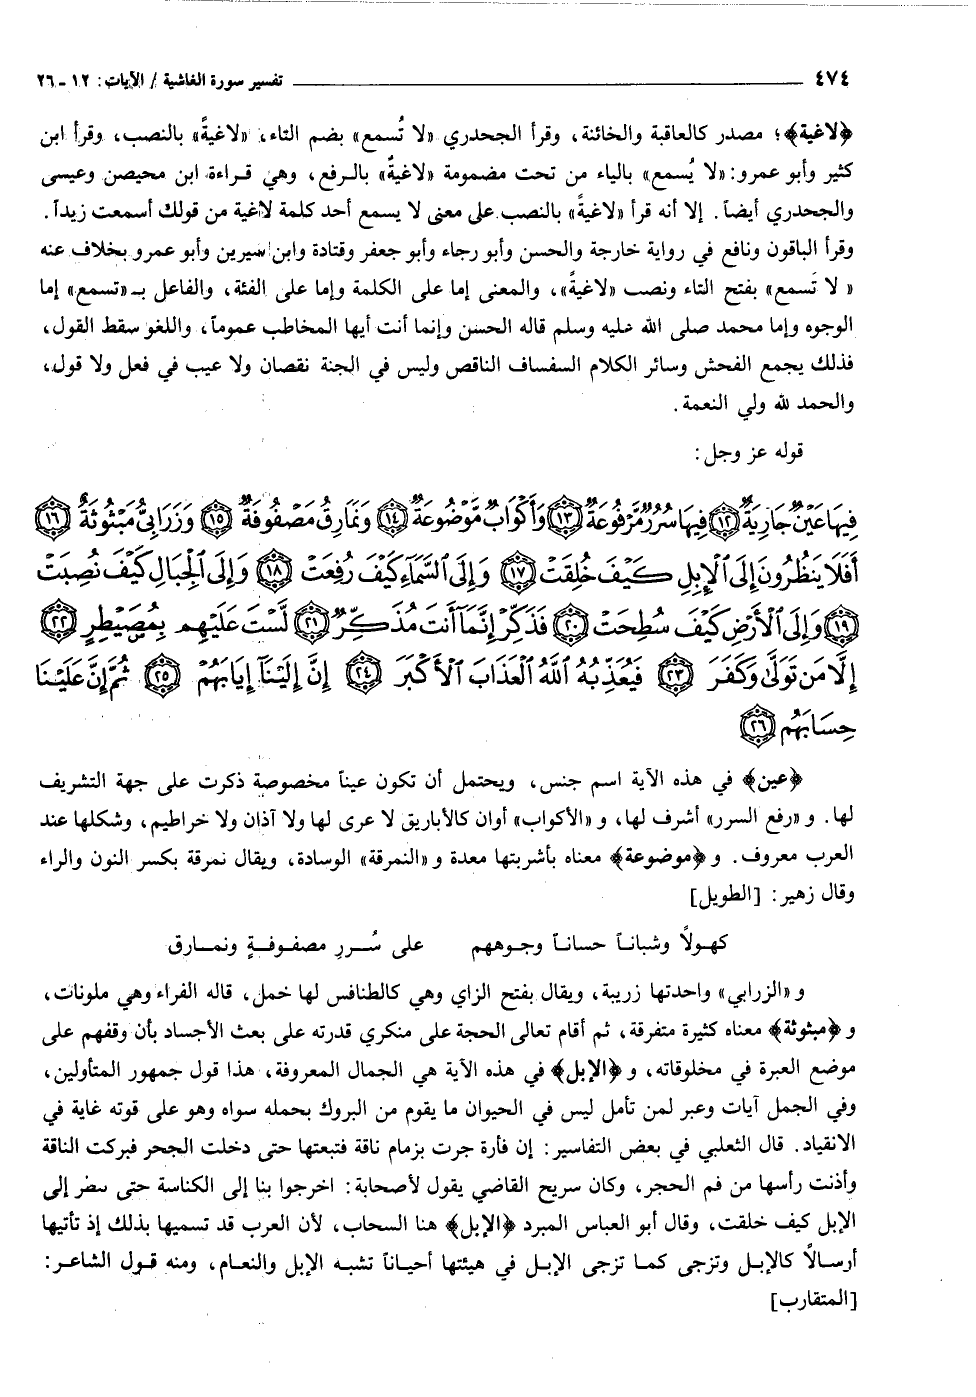 ٤٧٤ تفسير سورة الغاشية / الآيات: ١٢ - ٢٦
﴿لاغية﴾؛ مصدر كالعاقبة والخائنة، وقرأ الجحدري «لا تُسمع» بضم التاء، «لاغيةً» بالنصب، وقرأ ابن
كثير وأبو عمرو: «لا يُسمع» بالياء من تحت مضمومة «لاغيةٌ» بالرفع، وهي قراءة ابن محيصن وعيسى
والجحدري أيضاً. إلا أنه قرأ «لاغيةً» بالنصب على معنى لا يسمع أحد كلمة لاغية من قولك أسمعت زيداً.
وقرأ الباقون ونافع في رواية خارجة والحسن وأبو رجاء وأبو جعفر وقتادة وابن سيرين وأبو عمرو بخلاف عنه
« لا تَسمع» بفتح التاء ونصب «لاغيةً»، والمعنى إما على الكلمة وإما على الفئة، والفاعل بـ«تسمع» إما
الوجوه وإما محمد صلى الله عليه وسلم قاله الحسن وإنما أنت أيها المخاطب عموماً، واللغو سقط القول،
فذلك يجمع الفحش وسائر الكلام السفساف الناقص وليس في الجنة نقصان ولا عيب في فعل ولا قول،
والحمد لله ولي النعمة.
قوله عز وجل:
فِيهَا عَيْنٌ جَارِيَةٌ ﴿١٢﴾ فِيهَا سُرُرٌ مَّرْفُوعَةٌ ﴿١٣﴾ وَأَكْوَابٌ مَّوْضُوعَةٌ ﴿١٤﴾ وَنَمَارِقُ مَصْفُوفَةٌ ﴿١٥﴾ وَزَرَابِيُّ مَبْثُوثَةٌ ﴿١٦﴾
أَفَلَا يَنظُرُونَ إِلَى ٱلْإِبِلِ كَيْفَ خُلِقَتْ ﴿١٧﴾ وَإِلَى ٱلسَّمَآءِ كَيْفَ رُفِعَتْ ﴿١٨﴾ وَإِلَى ٱلْجِبَالِ كَيْفَ نُصِبَتْ
﴿١٩﴾ وَإِلَى ٱلْأَرْضِ كَيْفَ سُطِحَتْ ﴿٢٠﴾ فَذَكِّرْ إِنَّمَآ أَنتَ مُذَكِّرٌ ﴿٢١﴾ لَّسْتَ عَلَيْهِم بِمُصَيْطِرٍ ﴿٢٢﴾
إِلَّا مَن تَوَلَّىٰ وَكَفَرَ ﴿٢٣﴾ فَيُعَذِّبُهُ ٱللَّهُ ٱلْعَذَابَ ٱلْأَكْبَرَ ﴿٢٤﴾ إِنَّ إِلَيْنَآ إِيَابَهُمْ ﴿٢٥﴾ ثُمَّ إِنَّ عَلَيْنَا
حِسَابَهُم ﴿٢٦﴾
﴿عين﴾ في هذه الآية اسم جنس، ويحتمل أن تكون عيناً مخصوصة ذكرت على جهة التشريف
لها. و «رفع السرر» أشرف لها، و «الأكواب» أوان كالأباريق لا عرى لها ولا آذان ولا خراطيم، وشكلها عند
العرب معروف. و ﴿موضوعة﴾ معناه بأشربتها معدة و «النمرقة» الوسادة، ويقال نمرقة بكسر النون والراء
وقال زهير: [الطويل]
كهولاً وشباناً حساناً وجوههم على سُررِ مصفوفةٍ ونمارق
و «الزرابي» واحدتها زربية، ويقال بفتح الزاي وهي كالطنافس لها خمل، قاله الفراء وهي ملونات،
و ﴿مبثوثة﴾ معناه كثيرة متفرقة، ثم أقام تعالى الحجة على منكري قدرته على بعث الأجساد بأن وقفهم على
موضع العبرة في مخلوقاته، و ﴿الإبل﴾ في هذه الآية هي الجمال المعروفة، هذا قول جمهور المتأولين،
وفي الجمل آيات وعبر لمن تأمل ليس في الحيوان ما يقوم من البروك بحمله سواه وهو على قوته غاية في
الانقياد. قال الثعلبي في بعض التفاسير: إن فأرة جرت بزمام ناقة فتبعتها حتى دخلت الجحر فبركت الناقة
وأذنت رأسها من فم الحجر، وكان سريح القاضي يقول لأصحابة: اخرجوا بنا إلى الكناسة حتى إلى
الإبل كيف خلقت، وقال أبو العباس المبرد ﴿الإبل﴾ هنا السحاب، لأن العرب قد تسميها بذلك إذ تأتيها
أرسالاً كالإبل وتزجى كما تزجى الإبل في هيئتها أحياناً تشبه الإبل والنعام، ومنه قول الشاعر:
[المتقارب]